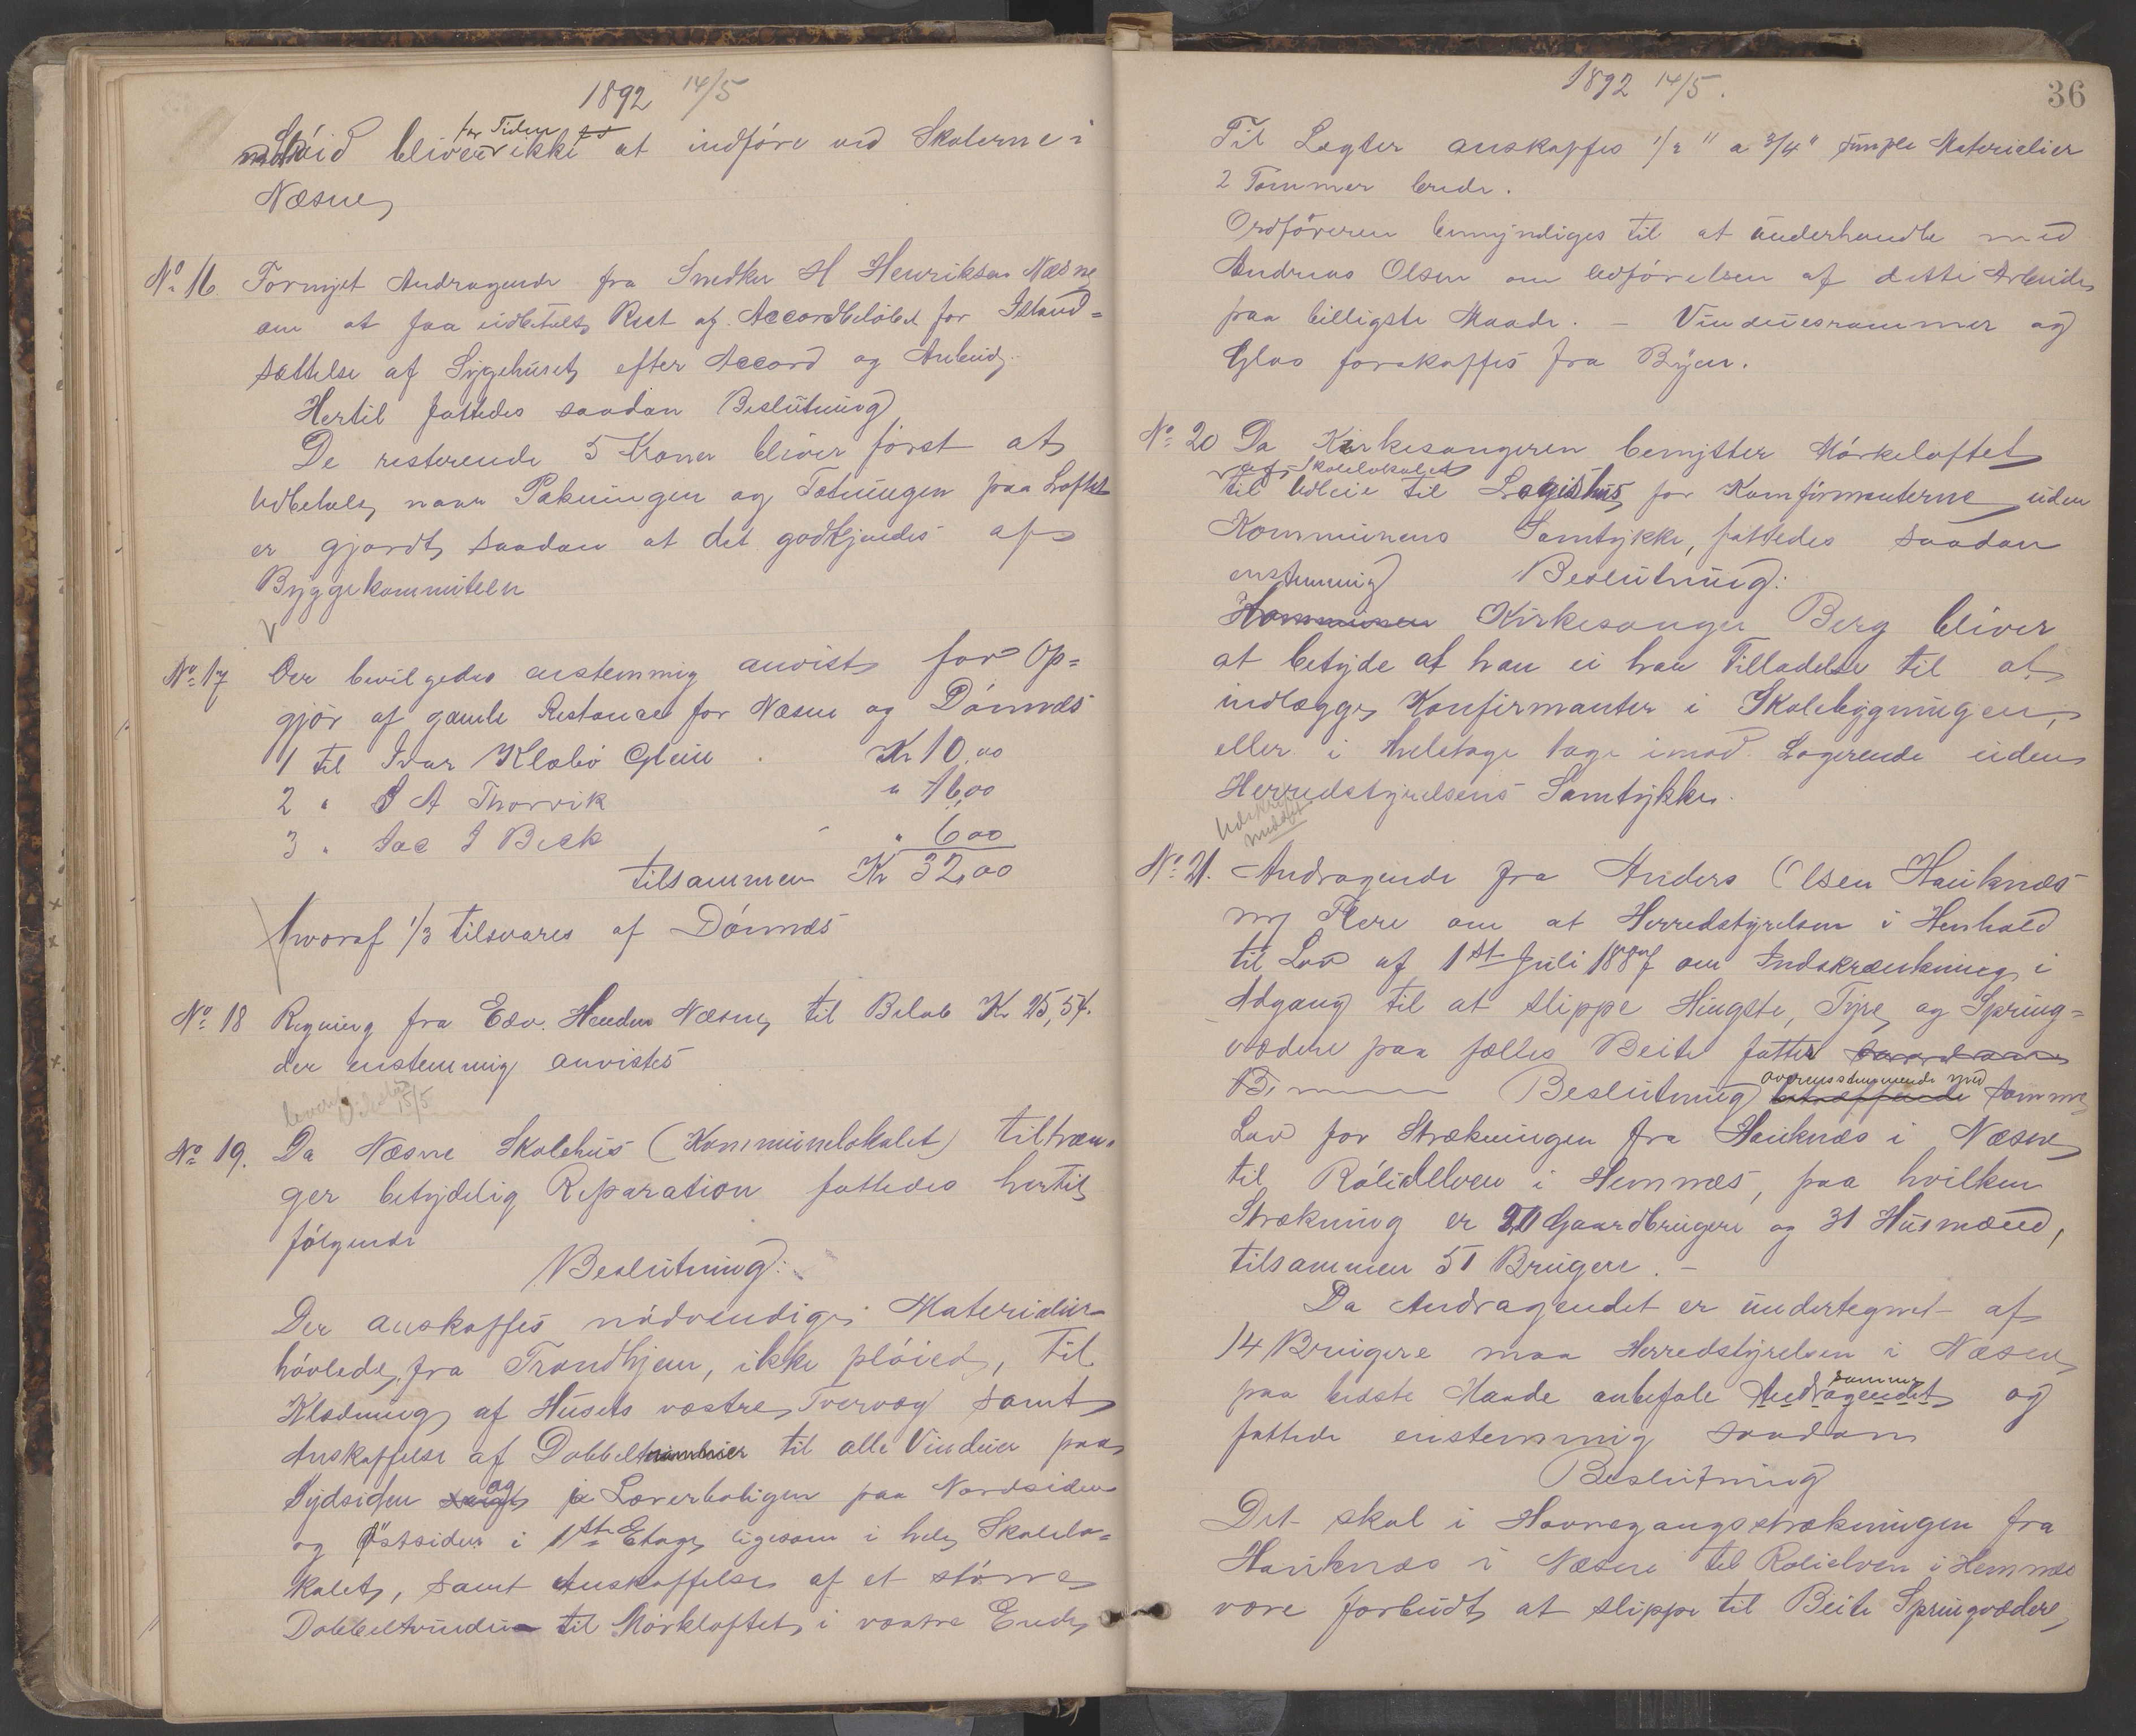 1892 14/5
Slöid bliver for Tiden ikke at indføre ved Skolerne i
Næsne
No 16 Fornyet Andragende fra Snedker H Henriksen Næsne
om at faa udbetalt Rest af Accordbeløbet for Istand=
sættelse af Sygehuset efter Accord og Anbud.
Hertil fattedes saadan Beslutning
De resterende 5 Kroner bliver først at
Udbetale naar Pakningen og Tætningen paa Loftet
er gjordt saadan at det godkjendes af
Byggekommiteen
No 17 Der bevilgedes enstemmig anvist for Op=
gjør af gamle Restancer for Næsne og Dønnæs
1 til Ivar Klæbo Glein Kr 10,00
2 " J A Thorvik " 16,00
3 " Jac J Beck " 6,00
tilsammen Kr 32,00
hvoraf 1/3 tilsvares af Dønnæs
No 18 Regning fra Edv. Næsne til Beløb Kr 25,54.
der enstemmig anvistes
15/5
No 19. Da Næsne Skolehus (Kommunelokalet) tiltræn-
ger betydelig Reparation fattedes hertil
følgende
Beslutning:
Der anskaffes nødvendige Materialier
høvlede fra Trondhjem, ikke pløiede, til
Klædning af Husets vestre Tvervæg samt
Anskaffelse af Dobbeltrammer til alle Vinduer paa
Sydsiden og i Lærerboligen paa Nordsiden
og Østsiden i 1ste Etage ligesom i hele Skolelo=
kalet, samt Anskaffelse af et større
Dobbeltvindu til Mørkloftet i vestre Ende
1892 14/5.
36
Til Lægter anskaffes 1/2" a 3/4" simple Materialier
2 Tommer brede.
Ordføreren bemyndiges til at underhandle med
Andreas Olsen om Udførelsen af dette Arbeide
paa billigste Maade. – Vinduesrammer og
Glas forskaffes fra Byen.
No 20 Da Kirkesangeren benytter Mørkeloftet
af Skolelokalet
til Udleie til Logishus for Konfirmanterne uden
Kommunens Samtykke, fattedes saadan
enstemmig Beslutning:
Kommunen Kirkesanger Berg bliver
at betyde at han ei har Tilladelse til at
indlægge Konfirmanter i Skolebygningen,
eller i heletage tage imod Logerende uden
Herredstyrelsens Samtykke.
No 21. Andragende fra Anders Olsen Hauknæs
m/ Flere om at Herredstyrelsen i Henhold
til Lov af 1st Juli 1887 om Indskrænkning i
Adgang til at slippe Hingste, Tyre og Spring=
vædere paa fælles Beite fatter
Beslutning overensstemmende med samme
Lov for Strækningen fra Hauknæs i Næsne
til Rølidelven i Hemnæs, paa hvilken
Strækning er 20 Gaardbrugere og 31 Husmænd,
tilsammen 51 Brugere. –
Da Andragendet er undertegnet af
14 Brugere maa Herredstyrelsen i Næsne
paa bedste Maade anbefale samme Andragendet og
fattede enstemmig saadan
Beslutning
Det skal i Havnegangsstrækningen fra
Hauknæs i Næsne til Rolielven i Hemnæs
være forbudt at slippe til Beite Springvædere,